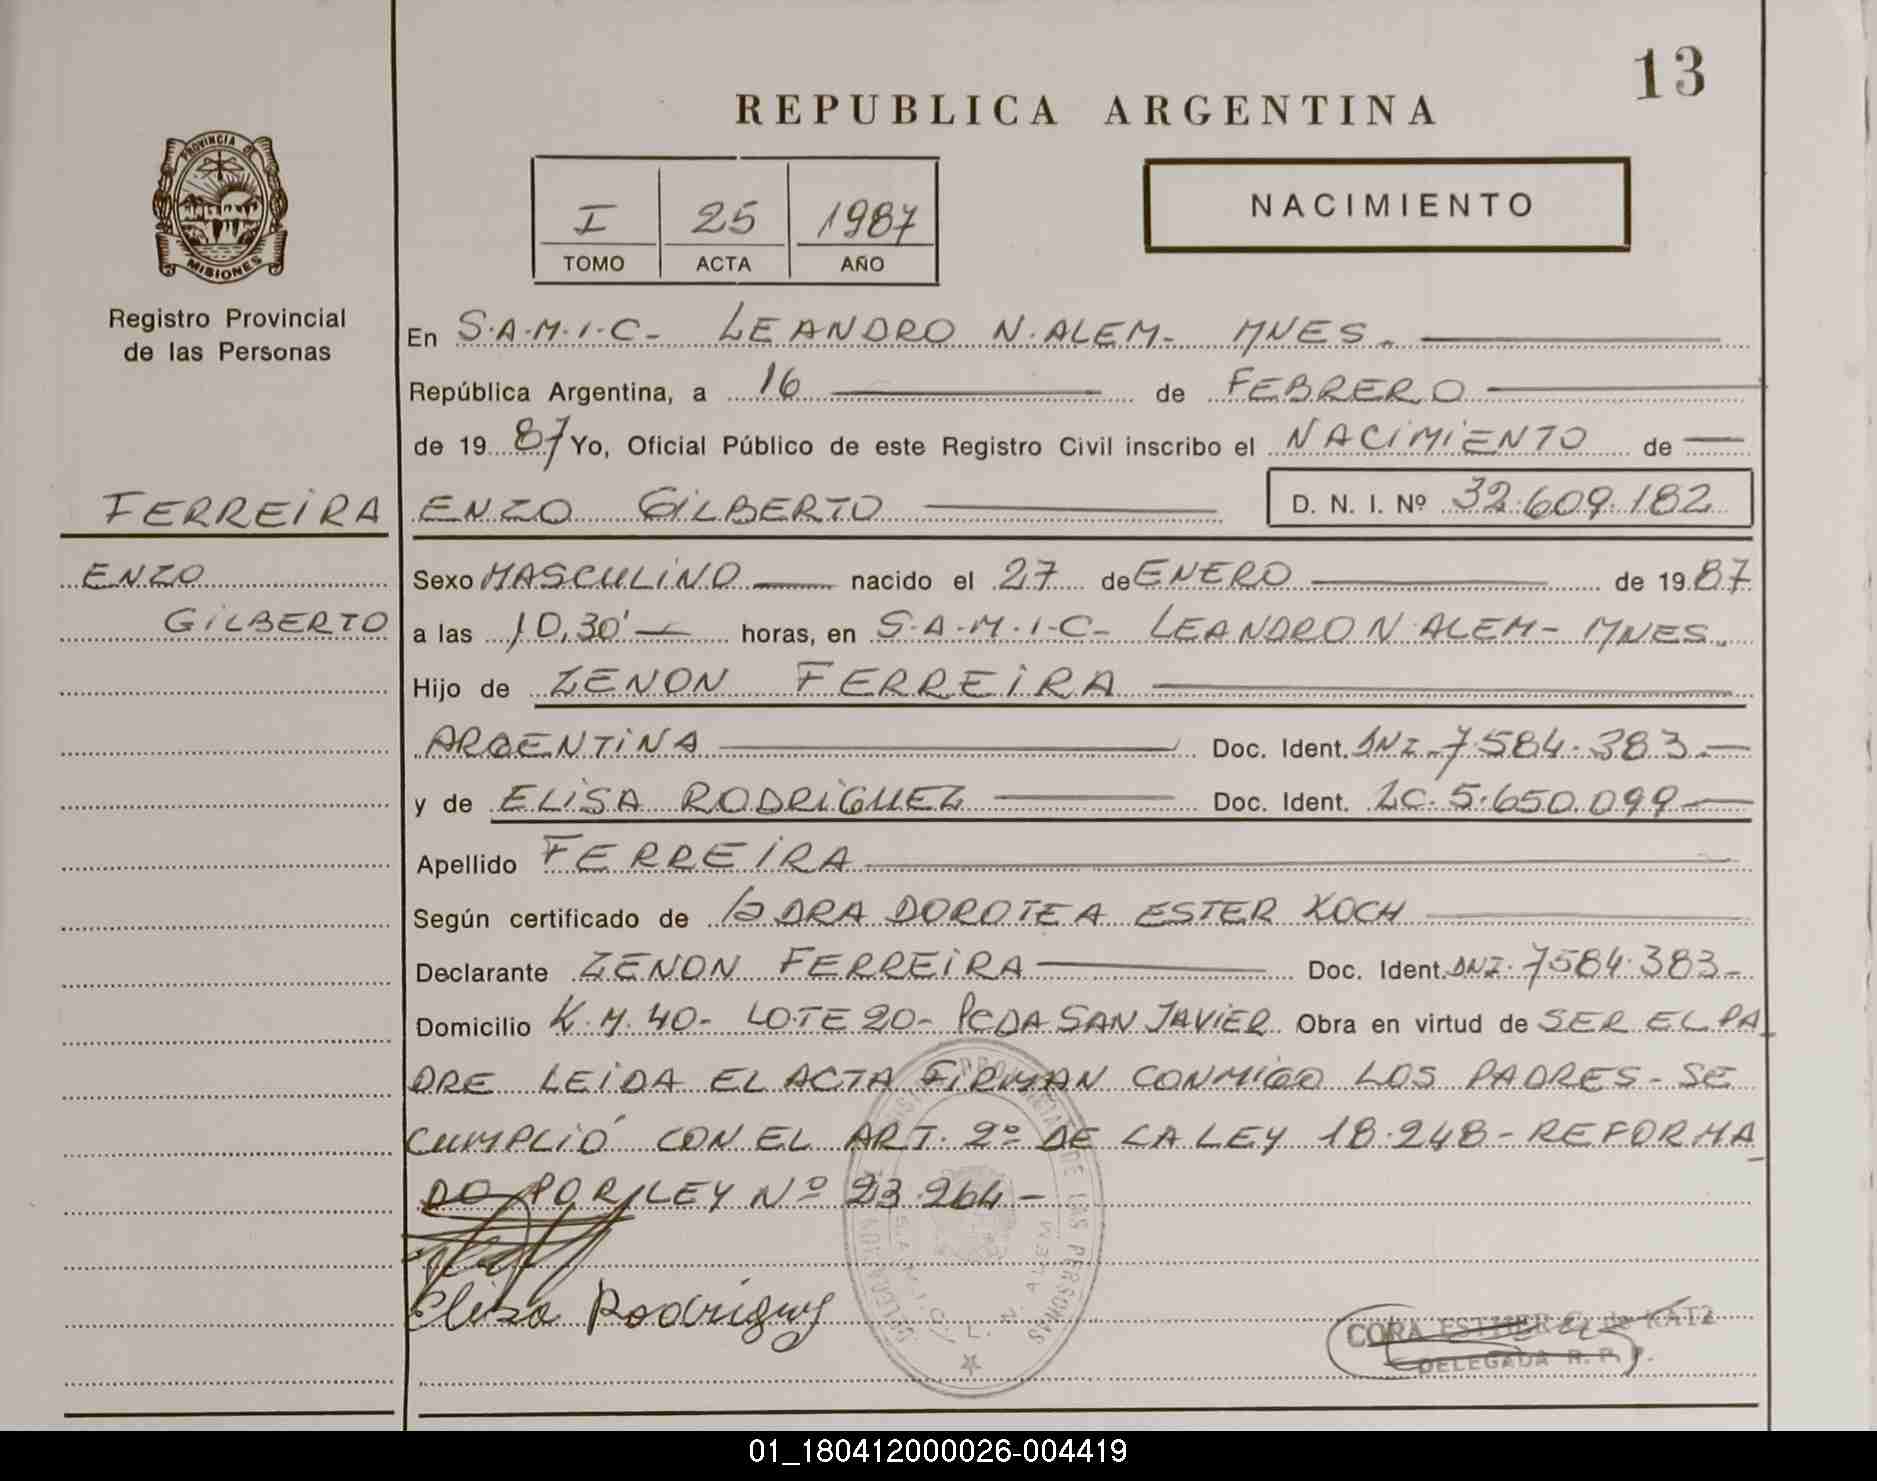 13
REPUBLICA ARGENTINA
PROVINCIA DE
MISIONES
Registro Provincial
de las Personas
I 25 1987
TOMO ACTA AÑO
NACIMIENTO
En S.A.M.I.C- LEANDRO N. ALEM- MNES.
República Argentina, a 16 de FEBRERO
de 1987 Yo, Oficial Público de este Registro Civil inscribo el NACIMIENTO de
FERREIRA ENZO GILBERTO D. N. I. Nº 32.609.182
ENZO
GILBERTO
Sexo MASCULINO nacido el 27 de ENERO de 1987
a las 10,30' horas, en S.A.M.I.C- LEANDRO N. ALEM- MNES.
Hijo de ZENON FERREIRA
ARGENTINA Doc. Ident. DNI 7.584.383
y de ELISA RODRIGUEZ Doc. Ident. LC. 5.650.099
Apellido FERREIRA
Según certificado de la DRA DOROTEA ESTER KOCH
Declarante ZENON FERREIRA Doc. Ident. DNI. 7584.383-
Domicilio K.M. 40- LOTE 20- PCDA SAN JAVIER Obra en virtud de SER EL PA
DRE LEIDA EL ACTA FIRMAN CONMIGO LOS PADRES- SE
CUMPLIÓ CON EL ART. 2º DE LA LEY 18.248- REFORMA
DO POR LEY Nº 23.264-
Elisa Rodriguez
PROVINCIAL DE LAS PERSONAS
S.A.M.I.C. L. N. ALEM
CORA ESTHER G. de KATZ
DELEGADA R. P. P.
01_180412000026-004419